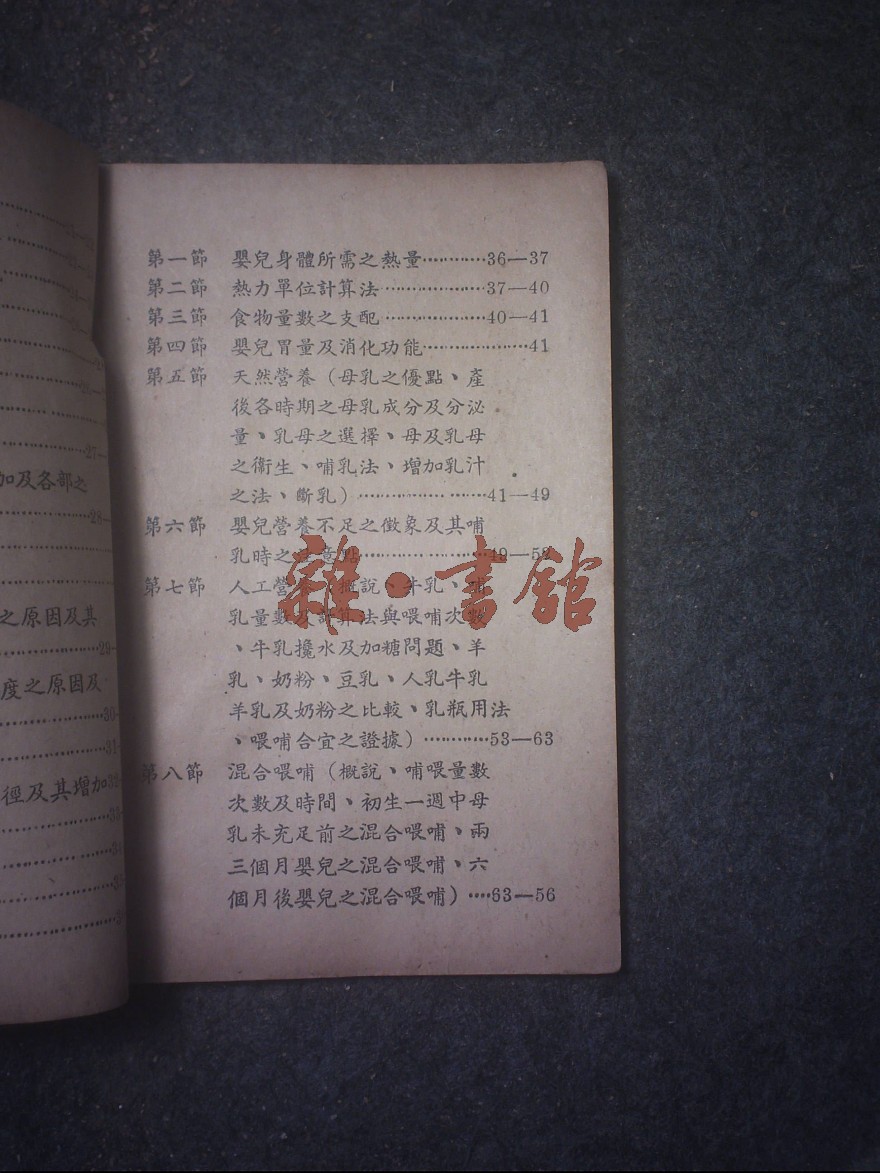 加及各部之
之原因及其
度之原因及
徑及其增加
第一節 嬰兒身體所需之熱量…………36—37
第二節 熱力單位計算法………………37—40
第三節 食物量數之支配………………40—41
第四節 嬰兒胃量及消化功能…………………41
第五節 天然營養（母乳之優點、產
後各時期之母乳成分及分泌
量、乳母之選擇、母及乳母
之衞生、哺乳法、增加乳汁
之法、斷乳）……………………41—49
第六節 嬰兒營養不足之徵象及其哺
乳時之意點……………………49—52
第七節 人工營（概說、牛乳、哺
乳量數及計算法與喂哺次數
、牛乳攙水及加糖問題、羊
乳、奶粉、豆乳、人乳牛乳
羊乳及奶粉之比較、乳瓶用法
、喂哺合宜之證據）…………53—63
第八節 混合喂哺（概說、哺喂量數
次數及時間、初生一週中母
乳未充足前之混合喂哺、兩
三個月嬰兒之混合喂哺、六
個月後嬰兒之混合喂哺）····63—56
雜·書館